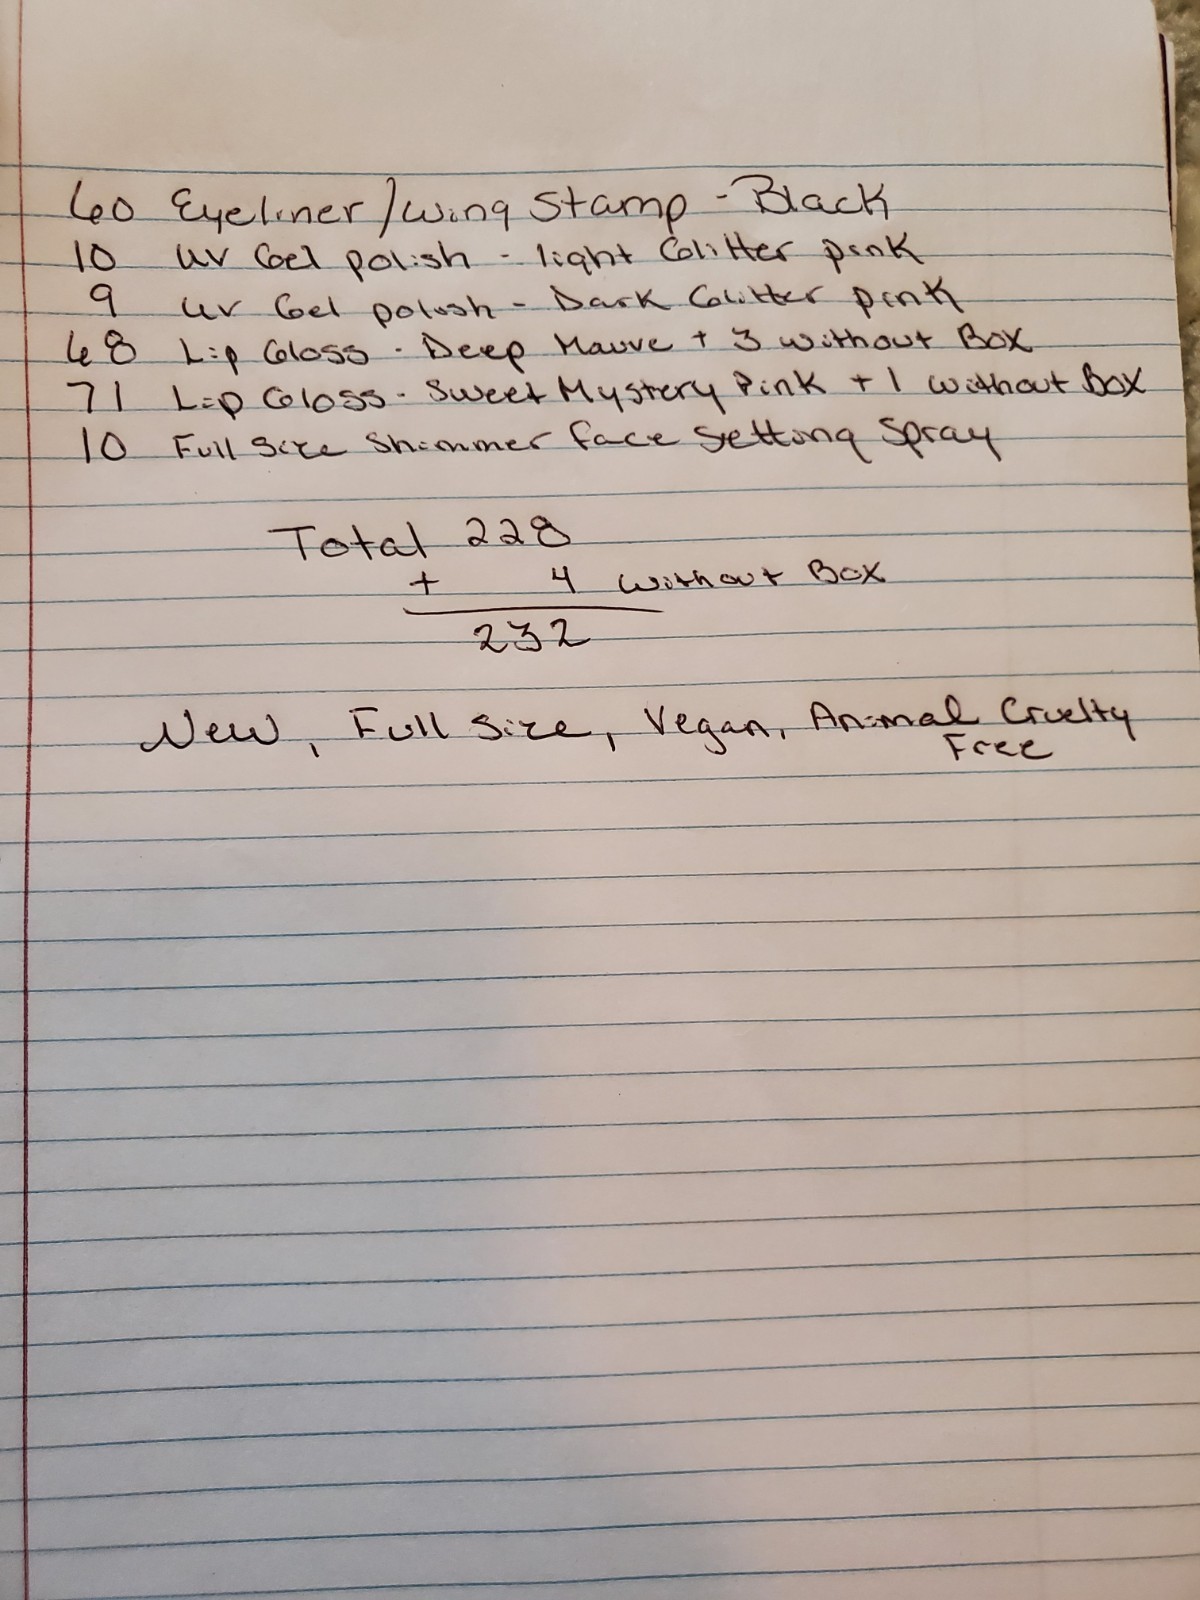 60 Eyeliner/wing Stamp - Black
10 UV Gel polish - light Glitter pink
9 UV Gel polish - Dark Glitter pink
68 Lip Gloss - Deep Mauve + 3 without Box
71 Lip Gloss - Sweet Mystery Pink + 1 without Box
10 Full Size Shimmer face Setting Spray
Total 228
+ 4 without Box
232
New, Full Size, Vegan, Animal Cruelty
Free